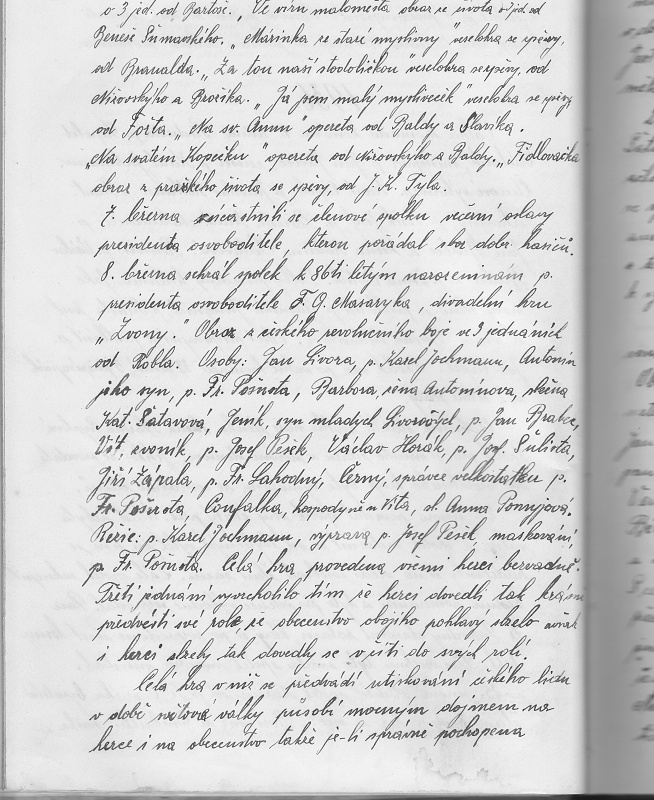 o 3 jed. od Bartoše. „Ve víru maloměsta obraz ze života o jed. od
Beneše Šumavského. „Mařinka ze staré myslivny" veselohra se zpěvy,
od Branalda. „Za tou naší stodoličkou" veselohra se zpěvy, od
Nižovského a Brožíka. „Já jsem malý mysliveček" veselohra se zpěvy
od Fořta. „Na sv. Annu" opereta od Baldy a Slavíka.
„Na svatém Kopečku" opereta od Nižovského a Baldy. „Fidlovačka
obraz z pražského života se zpěvy, od J. K. Tyla.
7. března zúčastnili se členové spolku večerní oslavy
presidenta osvoboditele, kterou pořádal sbor dobr. hasičů.
8. března sehrál spolek k 86ti letým narozeninám p.
presidenta osvoboditele T. G. Masaryka, divadelní hru
„Zvony." Obraz z českého revolučního boje ve 3 jednáních
od Robla. Osoby: Jan Livora, p. Karel Jochmann, Antonín
jeho syn, p. Fr. Pošusta, Barbora žena Antonínova, slečna
Kat. Šátavová, Jeník, syn mladých Livorových, p. Jan Brabec,
Vít, zvoník, p. Josef Pešek, Václav Horák, p. Josf. Šulista,
Jiří Zápala, p. Fr. Lahodný, Černý, správce velkostatku p.
Fr. Pošusta, Confalka, hospodyně u Víta, sl. Anna Pomyjová.
Režie: p. Karel Jochmann, výprava p. Josef Pešek, maskování,
p. Fr. Pošusta. Celá hra provedena všemi herci bezvadně.
Třetí jednání vyvrcholilo tím že herci dovedli tak krásně
předvésti své role že obecenstvo obojího pohlavý slzelo avšak
i herci slzely tak dovedly se vžíti do svých rolí.
Celá hra v níž se předvádí utiskování českého lidu
v době světová války působí mocným dojmem na
herce i na obecenstvo takže je-li správně pochopena